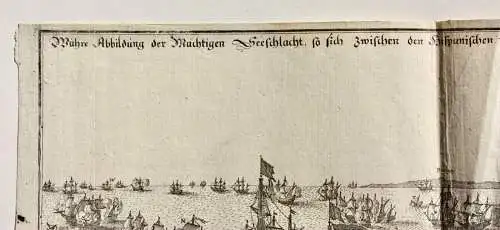 Wahre Abbildung der Machtigen Seeschlacht, so sich Zwischen den Hispanischen